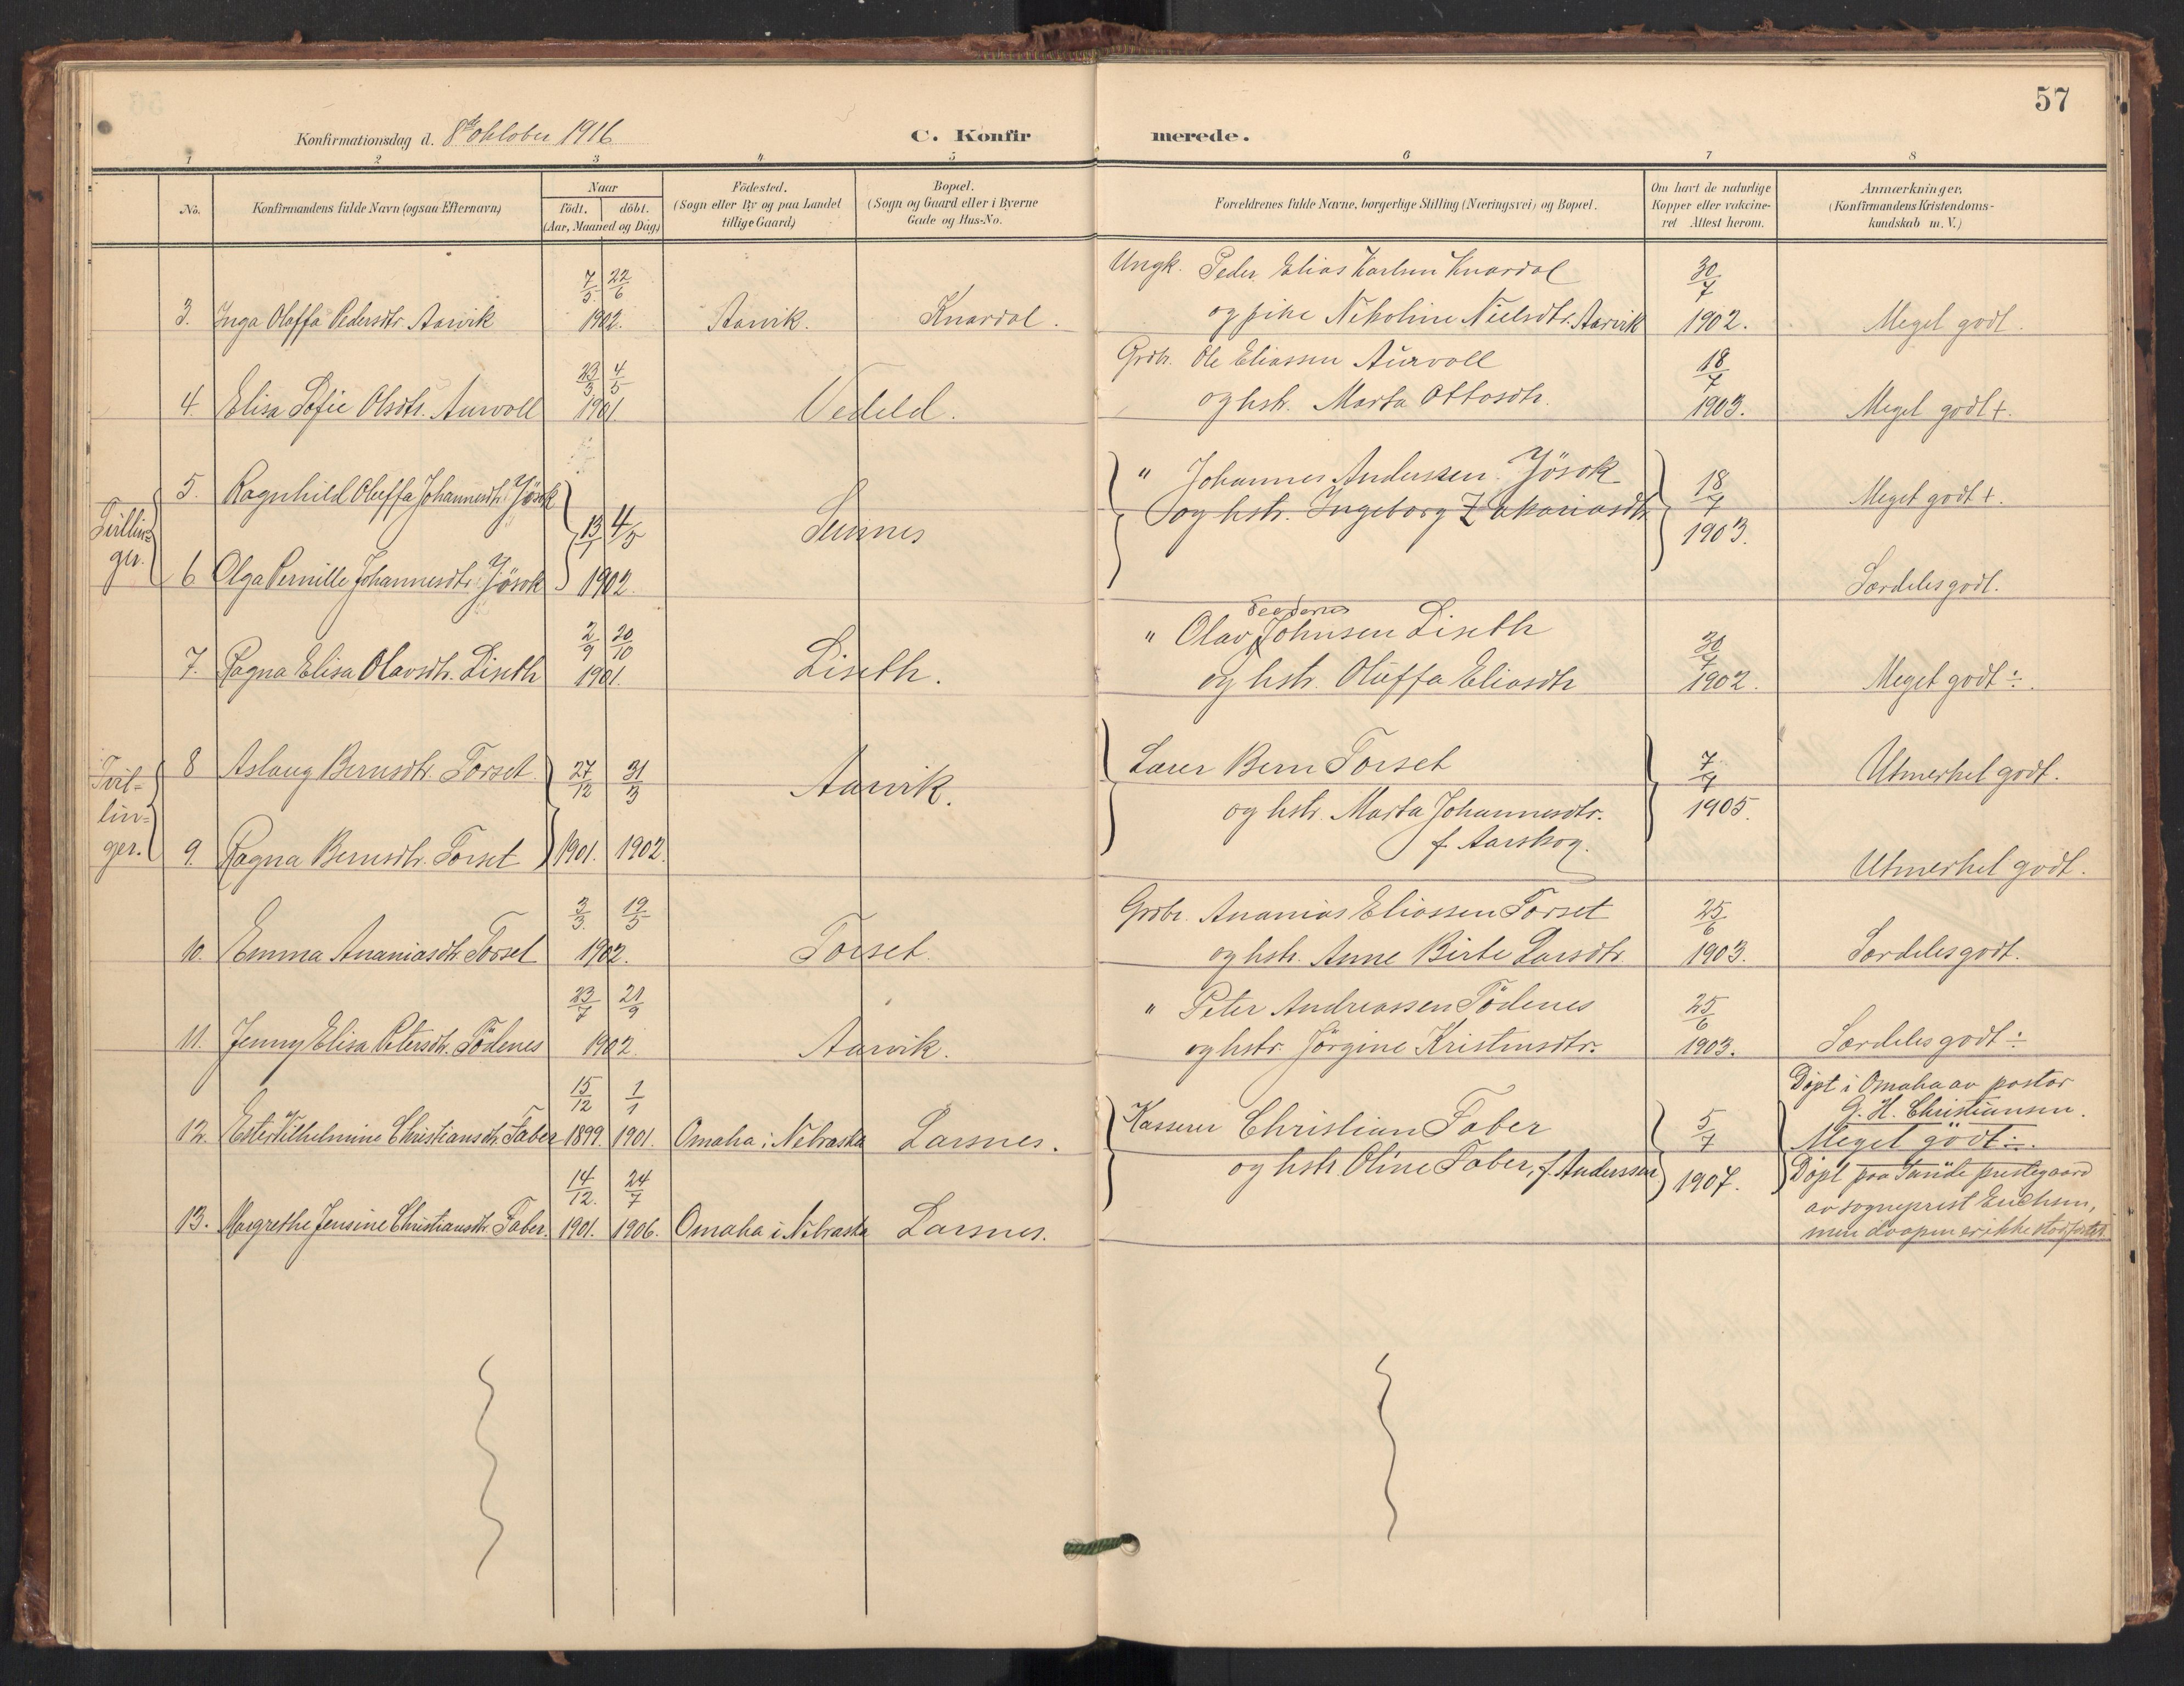 57
Konfirmationsdag d. 8de oktober 1916
C. Konfirmerede.
1 2 3 4 5 6 7 8
No.
Konfirmandens fulde Navn (ogsaa Efternavn)
Naar
födt. döbt.
(Aar, Maaned og Dag)
Födested.
(Sogn eller By og paa Landet
tillige Gaard)
Bopæl.
(Sogn og Gaard eller i Byerne
Gade og Hus-No.
Forældrenes fulde Navne, borgerlige Stilling (Næringsvei) og Bopæl.
Om havt de naturlige
Kopper eller vakcine-
ret Attest herom.
Anmærkninger.
(Konfirmandens Kristendoms-
kundskab m. V.)
7/5 22/6 Ungk. Peder Elias Karlsen Knardal 30/7
3. Inga Oloffa Pedersdtr. Aarvik 1902. Aarvik. Knardal. og pike Nikoline Nielsdtr. Aarvik 1902. Meget godt.
23/3 4/5 Grdbr. Ole Eliassen Aurvoll 18/7
4. Elisa Sofie Olsdtr. Aurvoll 1901. Vedeld. og hstr. Marta Ottosdtr. 1903. Meget godt +.
Tvillin-
ger.
5. Ragnhild Oluffa Johannesdtr. Jösok " Johannes Anderssen Jösok 18/7 Meget godt +.
13/1 4/5 og hstr. Ingeborg Zakariasdtr. 1903.
6 Olga Pernille Johannesdtr. Jösok 1902. Særdeles godt.
Teodorus
2/9 20/10 " Olav Johnsen Liseth 30/7
7. Ragna Elisa Olavsdtr. Liseth 1901. Liseth. og hstr. Oluffa Eliasdtr 1902. Meget godt ÷.
Tvil-
lin-
ger.
8 Aslaug Bernsdtr. Torset. 27/12 31/3 Aarvik. Lærer Bern Torset 7/7 Utmerket godt.
og hstr. Marta Johannesdtr. 1905.
f. Aarskog.
9. Ragna Bernsdtr. Torset 1901. 1902. Utmerket godt.
3/3. 19/5 Grdbr. Ananias Eliassen Torset 25/6
10. Emma Ananiasdtr. Torset 1902. Torset. og hstr. Anne Birte Larsdtr. 1903. Særdeles godt.
23/7 21/9 " Peter Andreassen Tödenes 25/6
11. Jenny Elisa Petersdtr. Tödenes 1902. Aarvik. og hstr. Jörgine Kristensdtr. 1903. Særdeles godt ÷
Döpt i Omaha av pastor
G. H. Christiansen.
15/12 1/1 Kasserer Christian Faber 5/7
12. Ester Vilhelmine Christiansdtr. Faber 1899. 1901. Omaha i Nebraska Larsnes. Meget godt ÷.
14/12. 24/7 og hstr. Oline Faber, f. Anderssen 1907. Döpt paa Sande prestegaard
av sogneprest
13. Margrethe Jensine Christiansdtr. Faber. 1901. 1906. Omaha i Nebraska Larsnes. men daapen er ikke